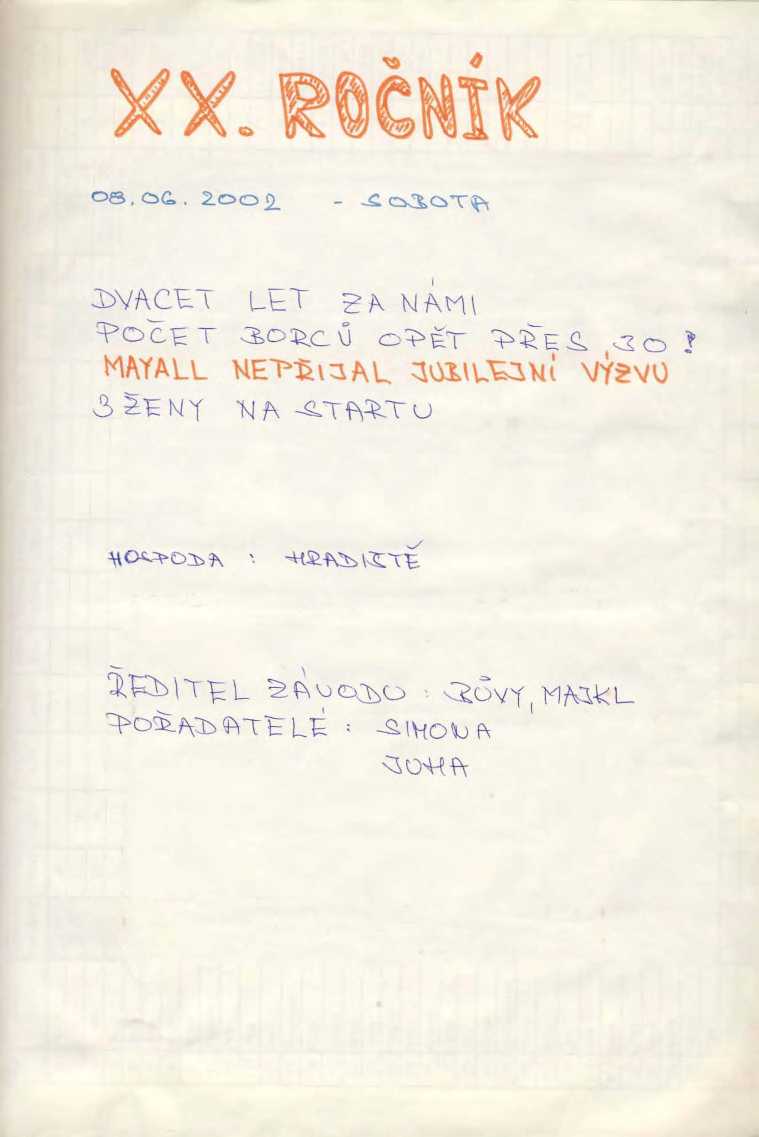 XX. ROČNÍK
08.06.2002 - SOBOTA
DVACET LET ZA NÁMI
POČET BORCŮ OPĚT PŘES 30!
MAYALL NEPŘIJAL JUBILEJNÍ VÝZVU
3 ŽENY NA STARTU
HOSPODA : HRADIŠTĚ
ŘEDITEL ZÁVODU : BŮVY, MAJKL
POŘADATELÉ : SIMONA
JUHA